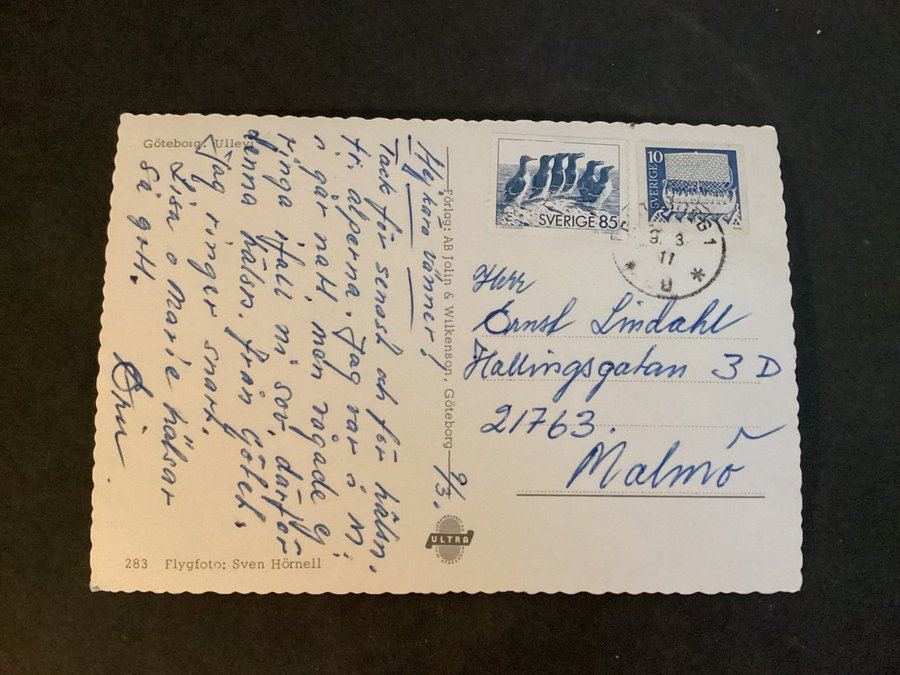 Göteborg. Ullevi
Hej kära vänner!
Tack för senast och för hälsn.
fr alperna. Jag var i M:
i går natt, men vågade ej
ringa ifall ni sov, därför
denna hälsn. från Götet.
Jag ringer snart.
Lisa o Marie hälsar
så gott.
283 Flygfoto: Sven Hörnell
Förlag: AB Jolin & Wilkenson, Göteborg
9/3.
ULTRA
SVERIGE 85
SVERIGE 10
9. 3
11
Herr
Ernst Lindahl
Hallingsgatan 3 D
21763.
Malmö